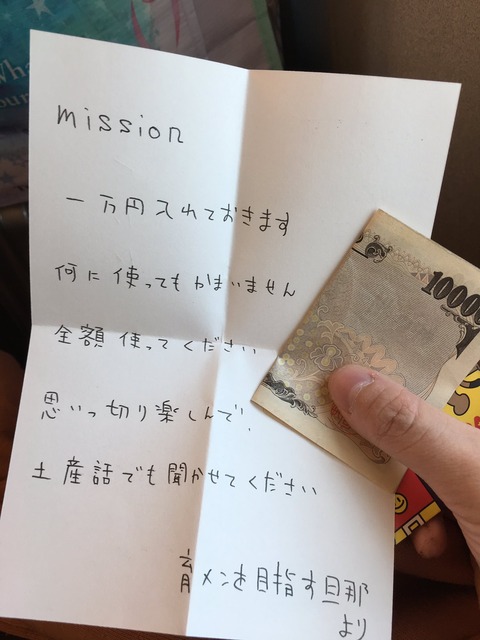 mission
一万円入れておきます
何に使ってもかまいません
全額使ってください
思いっ切り楽しんで、
土産話でも聞かせてください
育メンを目指す旦那
より
10000